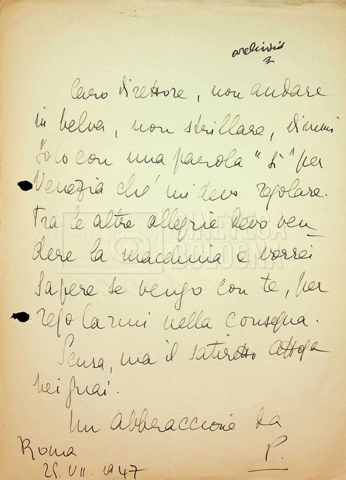 archivio
Caro direttore, non andare
in belva, non strillare, dimmi
solo con una parola "si" per
Venezia ché mi devo regolare.
Tra le altre allegrie devo ven-
dere la macchina e vorrei
sapere se vengo con te, per
regolarmi nella consegna.
Scusa, ma il satiretto affoga
nei guai.
Un abbraccione da
P.
Roma
25. VII. 1947
CINETECA
BOLOGNA